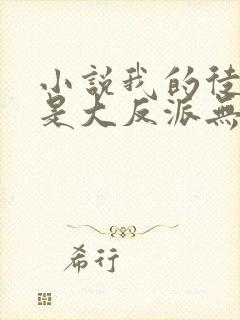 小說我的徒
是大反派無
希行